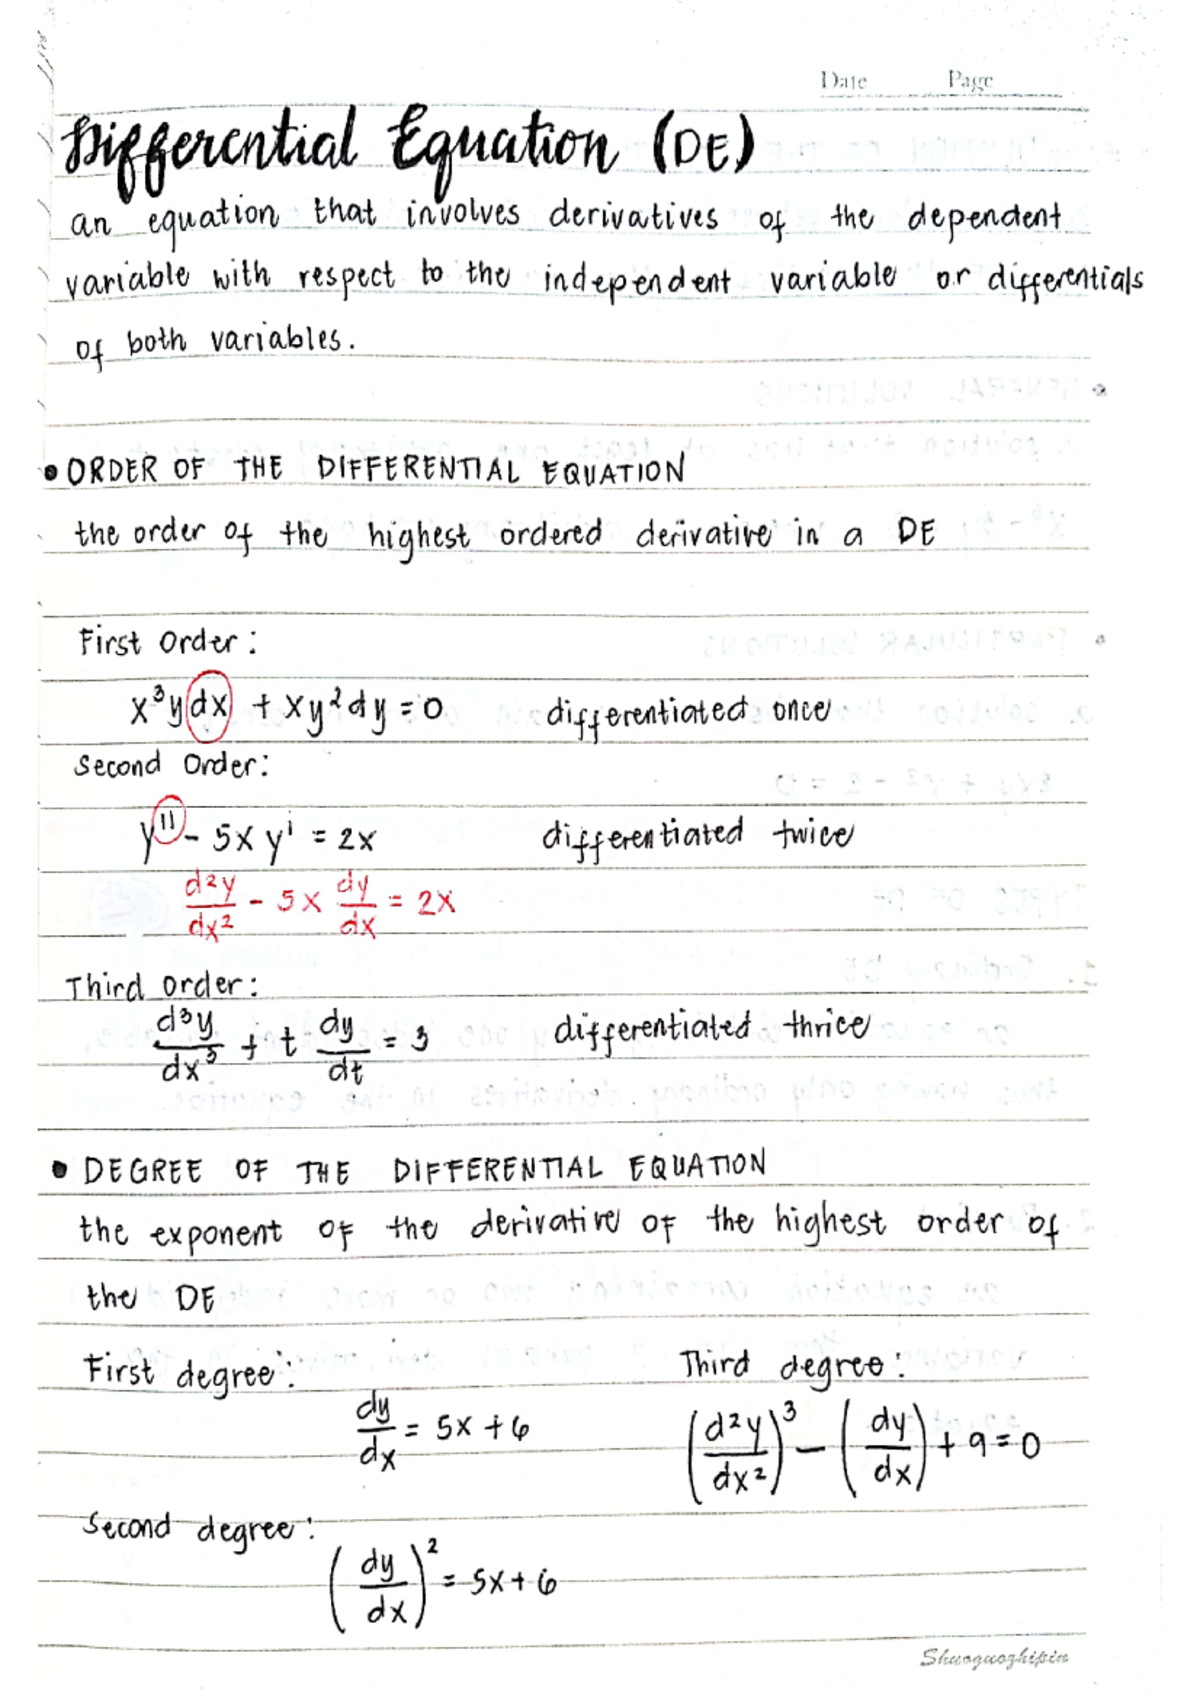 Date Page
Differential Equation (DE)
an equation that involves derivatives of the dependent
variable with respect to the independent variable or differentials
of both variables.
• ORDER OF THE DIFFERENTIAL EQUATION
the order of the highest ordered derivative in a DE
First Order:
x³ydx + xy²dy = 0 differentiated once
Second Order:
y'' - 5xy' = 2x differentiated twice
d²y/dx² - 5x dy/dx = 2x
Third Order:
d³y/dx³ + t dy/dt = 3 differentiated thrice
• DEGREE OF THE DIFFERENTIAL EQUATION
the exponent of the derivative of the highest order of
the DE
First degree: Third degree:
dy/dx = 5x + 6 (d²y/dx²)³ - (dy/dx) + 9 = 0
Second degree:
(dy/dx)² = 5x + 6
Shuoguozhipin